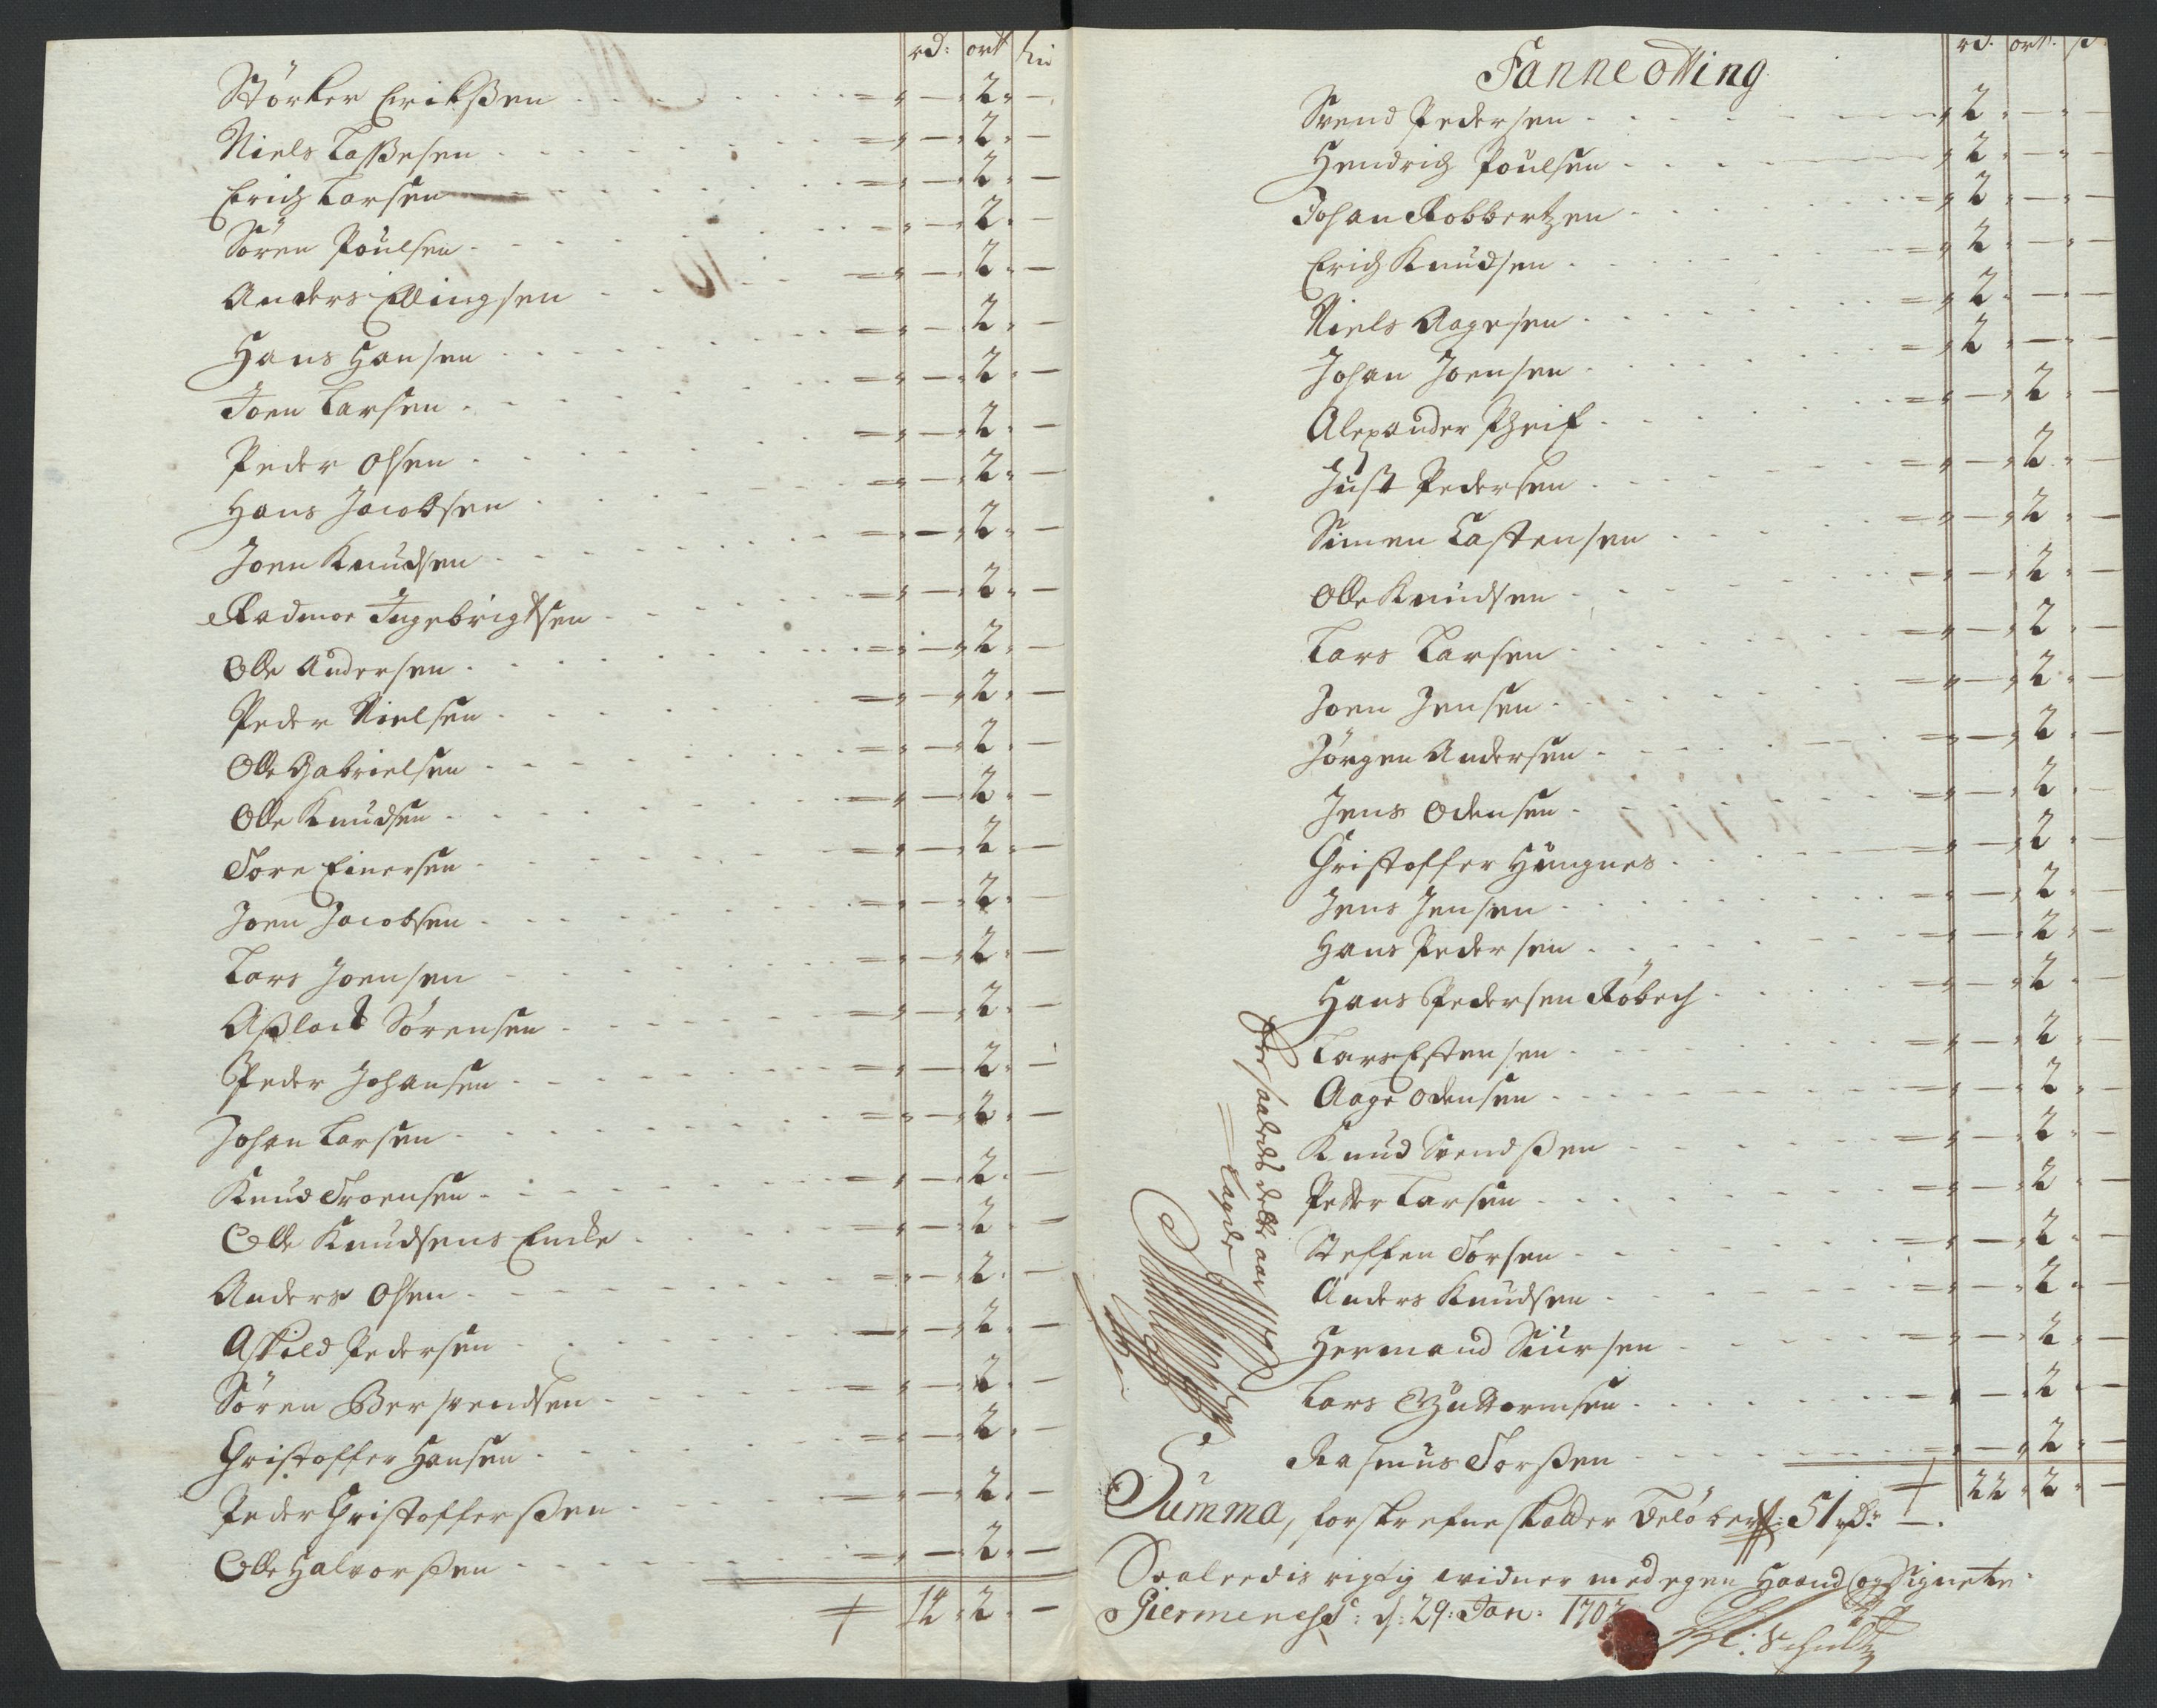 rd: ort
Störker Erichßen 2
Niels Laßesen 2
Erich Larsen 2
Sören Poulsen 2
Anders Ellingsen 2
Hans Hansen 2
Joen Larsen 2
Peder Olsen 2
Hans Jacobsen 2
Joen Knudsen 2
Radmoe Ingebrigtsen 2
Olle Andersen 2
Peder Nielsen 2
Olle Gabrielsen 2
Olle Knudsen 2
Tore Einersen 2
Joen Jacobsen 2
Lars Joensen 2
Aßlack Sörensen 2
Peder Johansen 2
Johan Larsen 2
Knud Troensen 2
Olle Knudsens Encke 2
Anders Olsen 2
Askild Pedersen 2
Sören Berswendsen 2
Christoffer Hansen 2
Peder Christofferßen 2
Olle Halvorßen 2
14 2 -
rd. ort. s
Fanne otting
Svend Pedersen 2
Hendrich Poulsen 2
Johan Robbertzen 2
Erich Knudsen 2
Niels Aagesen 2
Johan Joensen 2
Alexander Pheif 2
Just Pedersen 2
Simen Castensen 2
Olle Knudsen 2
Lars Larsen 2
Joen Jensen 2
Jörgen Andersen 2
Jens Odensen 2
Christoffer Hungnes 2
Jens Jensen 2
Hans Pedersen 2
Hans Pedersen Röbech 2
Lars Estensen 2
Aage Odensen 2
Knud Svendßen 2
Petter Larsen 2
Steffen Torsen 2
Anders Knudsen 2
Hermand Siursen 2
Lars Guttormsen 2
Rasmus Torßen 2
22 2 -
Summa, forskrefne skatter belöber 51 rdr -
Saaleedis rigtig vidner med egen Haand og Signete
Giermenes d: 29: Jan: 170
Schultz
saaledes dette aar
Lagde